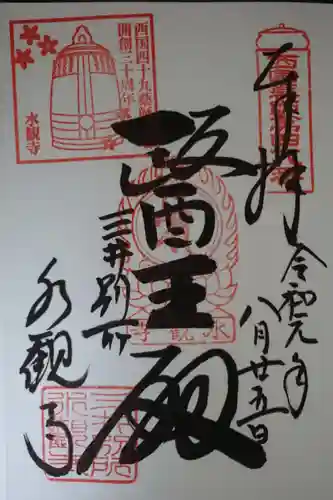 奉拝
令和元年
八月廿五日
醫王殿
三井別所
水観寺
西国四十九薬師
開創三十周年
水観寺
水観寺